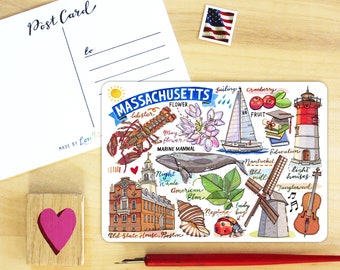 Post Card
to
MADE BY
MASSACHUSETTS
FLOWER
lobster
May flower
Sailing
Cranberry
FRUIT
Education
MARINE MAMMAL
Right Whale
Nantucket
light houses
American Elm
Old mill
Tanglewood
Neptune
Lady bug
Old State House, Boston